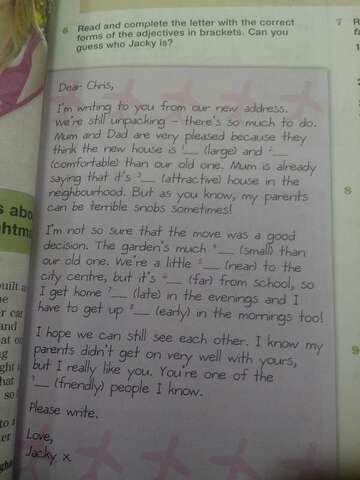 6 Read and complete the letter with the correct
forms of the adjectives in brackets. Can you
guess who Jacky is?
Dear Chris,
I'm writing to you from our new address.
We're still unpacking – there's so much to do.
Mum and Dad are very pleased because they
think the new house is 1__ (large) and 2__
(comfortable) than our old one. Mum is already
saying that it's 3__ (attractive) house in the
neighbourhood. But as you know, my parents
can be terrible snobs sometimes!
I'm not so sure that the move was a good
decision. The garden's much 4__ (small) than
our old one. We're a little 5__ (near) to the
city centre, but it's 6__ (far) from school, so
I get home 7__ (late) in the evenings and I
have to get up 8__ (early) in the mornings too!
I hope we can still see each other. I know my
parents didn't get on very well with yours,
but I really like you. You're one of the
9__ (friendly) people I know.
Please write.
Love,
Jacky x
7
8
9